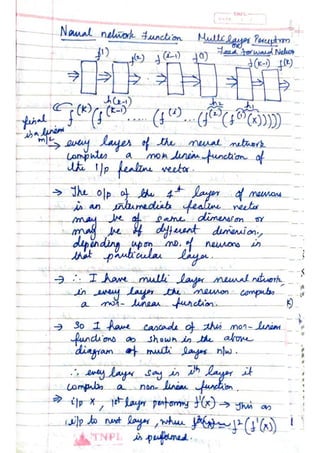 Neural network Function Multi Layer Perceptron
or
Feed forward Netwo
f(1) f(2) f(k-1) f(k)
h(k-1) h2 h1
f(k) (f(k-1) ( ..... (f(2) (f(1)(x)))))
final
is a linear
m/c
→ every layer of the neural network
computes a non linear function of
the i/p feature vector.
→ The o/p of the 1st layer of neurons
is an intermediate feature vector
may be of same dimension or
may be of different dimension,
depending upon no. of neurons in
that particular layer.
→ ∴ I have multi layer neural network,
in every layer the neuron computes
a non-linear function.
→ So I have cascade of this non-linear
functions as shown in the above
diagram of multi layer n/w.
∴ every layer say in ith layer it
computes a non linear function
⇒ i/p x, 1st layer performs f1(x) → this as
i/p to next layer, where f2(f1(x))
is performed.
TNPL